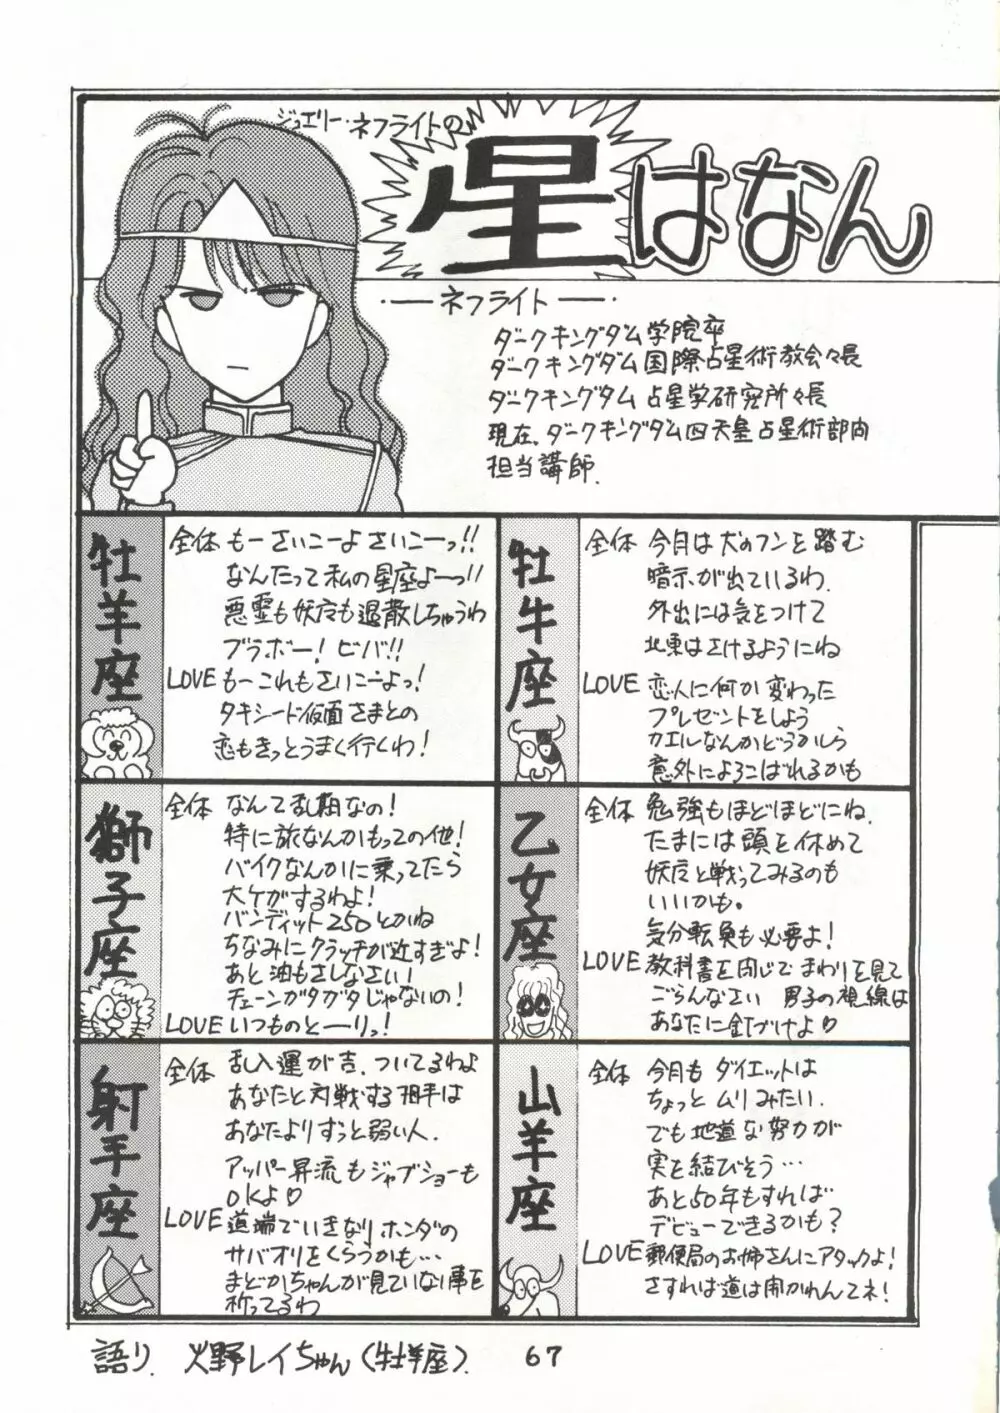 ジュエリー・ネフライトの
星はなん
・—ネフライト—・
ダークキングダム学院卒
ダークキングダム国際占星術教会々長
ダークキングダム占星学研究所々長
現在、ダークキングダム四天皇占星術部門
担当講師.
牡羊座
全体 もーさいこーよさいこーっ!!
なんたって私の星座よーっ!!
悪霊も妖魔も退散しちゃうわ
ブラボー!ビバ!!
LOVE もーこれもさいこーよっ!
タキシード仮面さまとの
恋もきっとうまく行くわ!
牡牛座
全体 今月は犬のフンを踏む
暗示が出ているわ.
外出には気をつけて
北東はさけるようにね
LOVE 恋人に何か変わった
プレゼントをしよう
カエルなんかどうかしら
意外によろこばれるかも
獅子座
全体 なんて乱期なの!
特に旅なんかもっての他!
バイクなんかに乗ってたら
大ケガするわよ!
バンディット250とかね
ちなみにクラッチが近すぎよ!
あと油もさしなさい!
チェーンガタガタじゃないの!
LOVE いつものとーりっ!
乙女座
全体 勉強もほどほどにね.
たまには頭を休めて
妖魔と戦ってみるのも
いいかも。
気分転換も必要よ!
LOVE 教科書を閉じてまわりを見て
ごらんなさい 男子の視線は
あなたに釘づけよ♡
射手座
全体 乱入運が吉.ついてるわよ
あなたと対戦する相手は
あなたよりずっと弱い人.
アッパー昇流もジャブショーも
OKよ♡
LOVE 道端でいきなりホンダの
サバオリをくらうかも…
まどかちゃんが見ていない事を
祈ってるわ
山羊座
全体 今月もダイエットは
ちょっとムリみたい.
でも地道な努力が
実を結びそう…
あと50年もすれば
デビューできるかも?
LOVE 郵便局のお姉さんにアタックよ!
さすれば道は開かれんてネ!
語り. 火野レイちゃん(牡羊座).
67